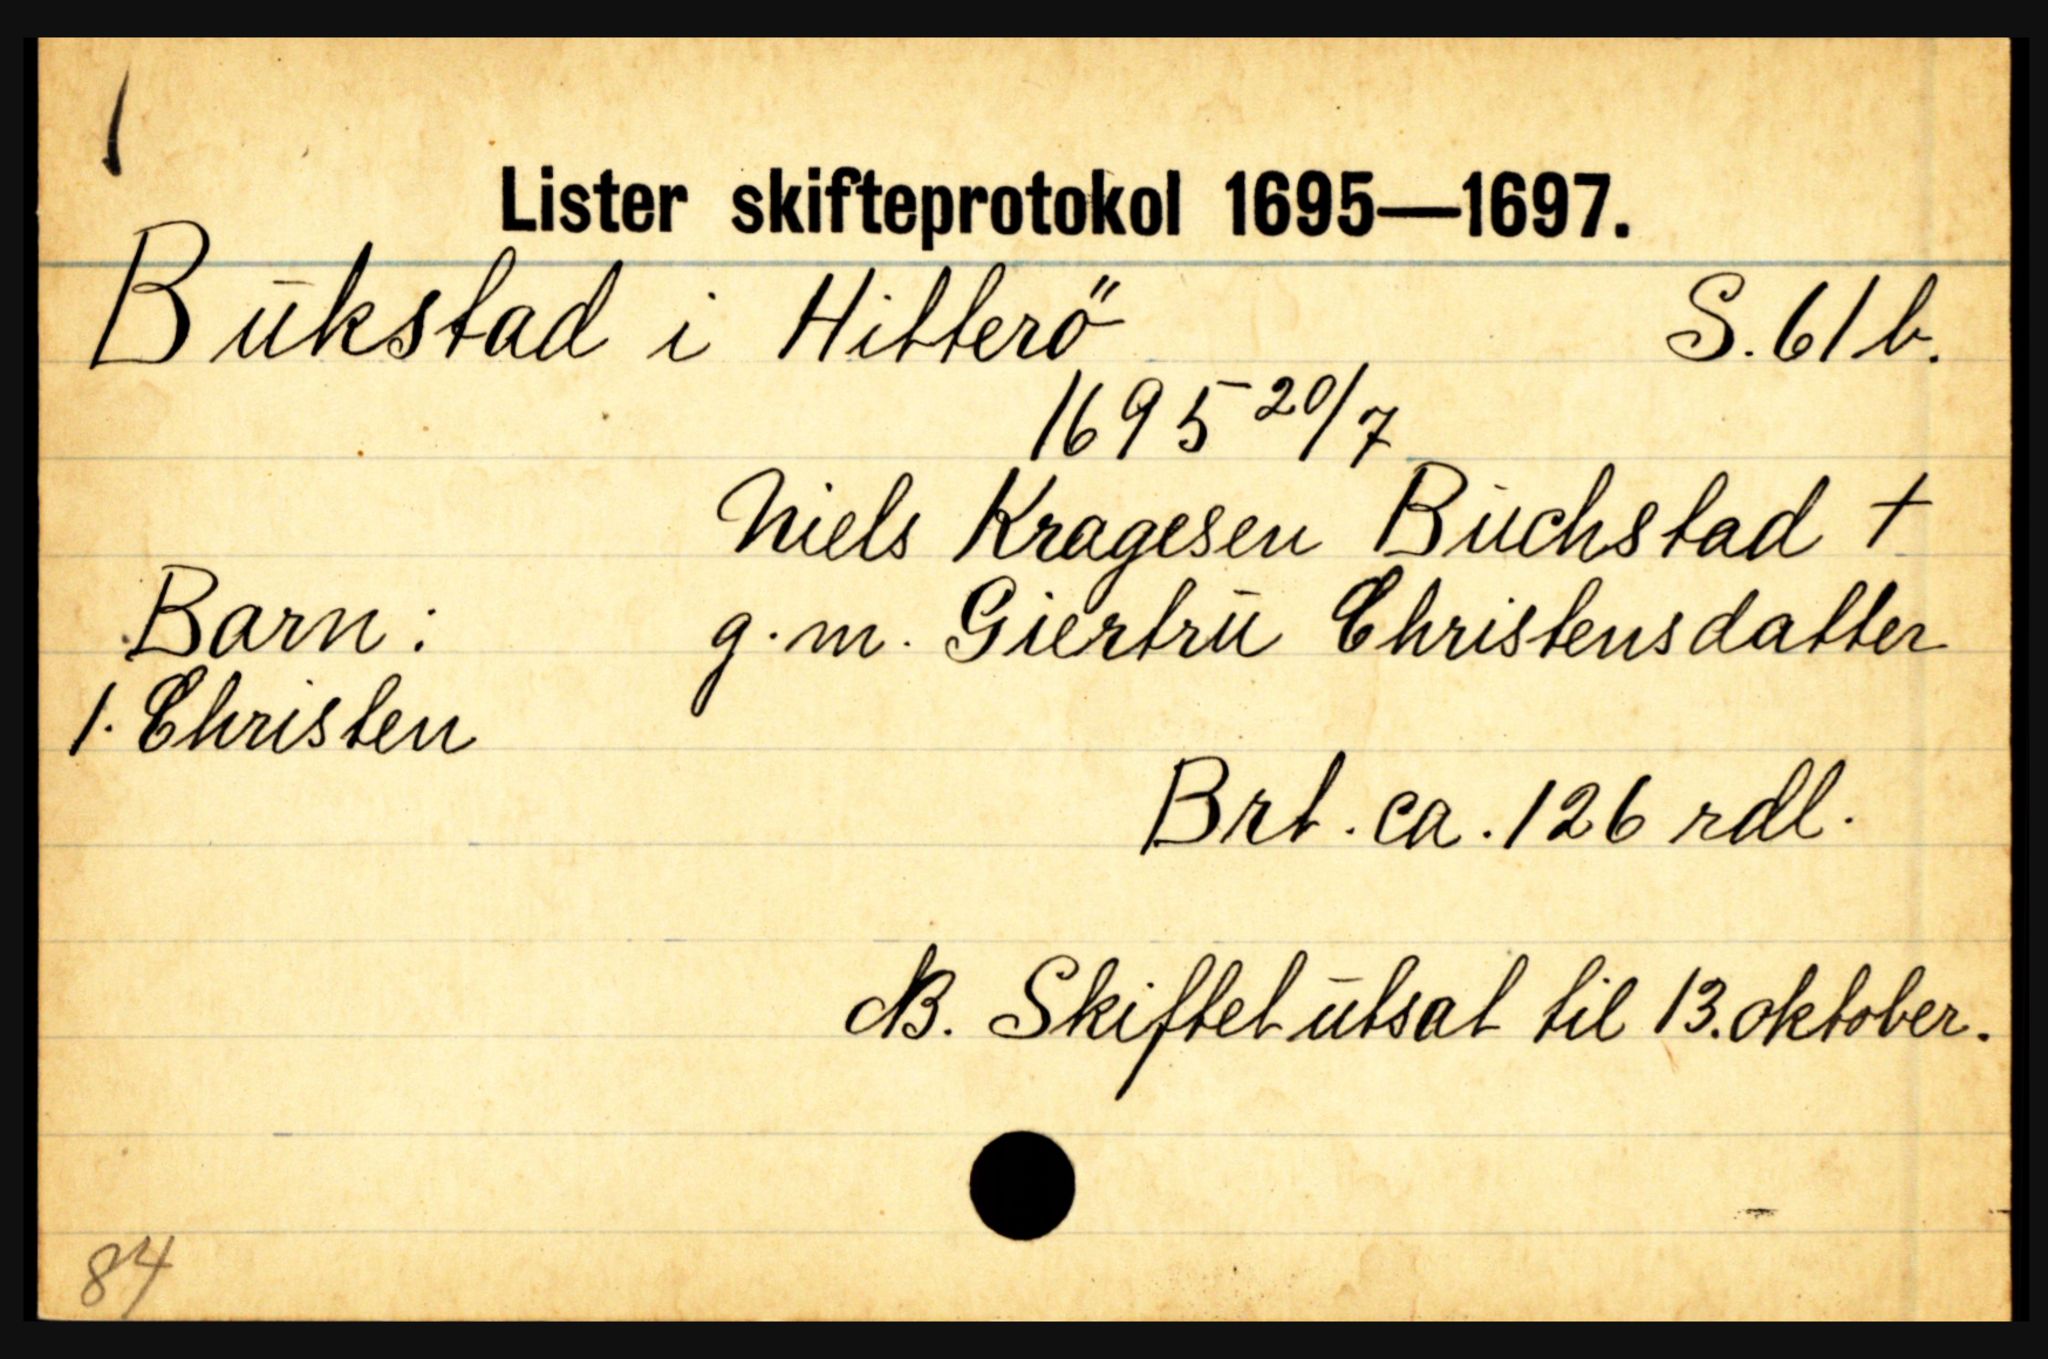 Lister skifteprotokol 1695—1697.
Būkstad i Hitterö S. 61b.
1695 20/7
Niels Kragesen Būchstad +
Barn: g.m. Giertrū Christensdatter
1. Christen
Brt. ca. 126 rdl.
NB. Skiftet ūtsat til 13. oktober.
84